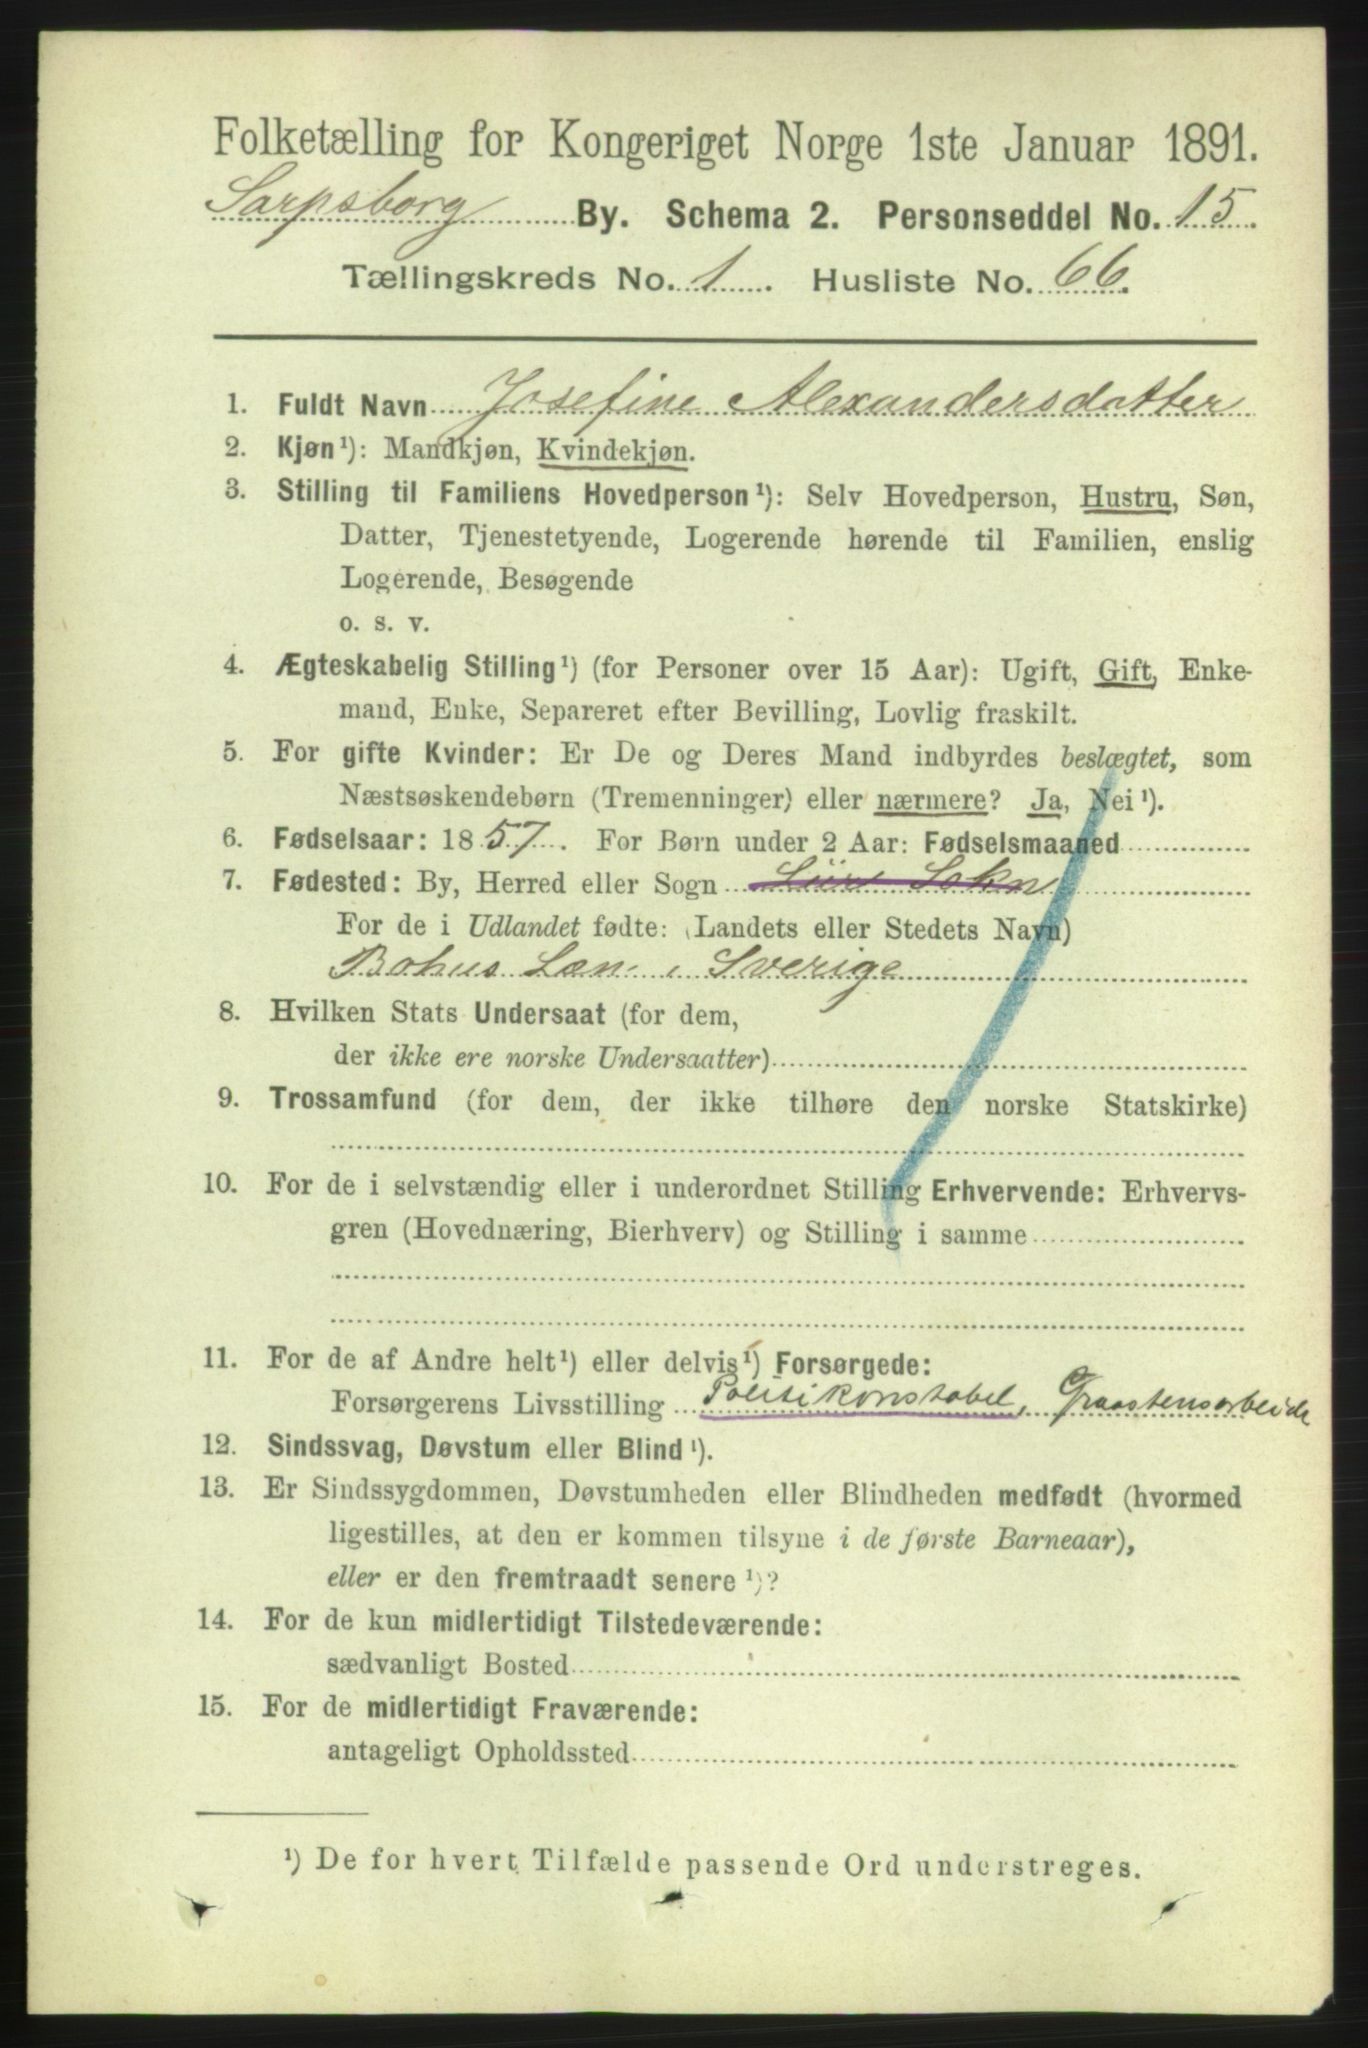 Folketælling for Kongeriget Norge 1ste Januar 1891.
Sarpsborg By. Schema 2. Personseddel No. 15.
Tællingskreds No. 1. Husliste No. 66.
1. Fuldt Navn Josefine Alexandersdatter
2. Kjøn¹): Mandkjøn, Kvindekjøn.
3. Stilling til Familiens Hovedperson¹): Selv Hovedperson, Hustru, Søn,
Datter, Tjenestetyende, Logerende hørende til Familien, enslig
Logerende, Besøgende
o. s. v.
4. Ægteskabelig Stilling¹) (for Personer over 15 Aar): Ugift, Gift, Enke-
mand, Enke, Separeret efter Bevilling, Lovlig fraskilt.
5. For gifte Kvinder: Er De og Deres Mand indbyrdes beslægtet, som
Næstsøskendebørn (Tremenninger) eller nærmere? Ja, Nei¹).
6. Fødselsaar: 1857. For Børn under 2 Aar: Fødselsmaaned
7. Fødested: By, Herred eller Sogn Sokn
For de i Udlandet fødte: (Landets eller Stedets Navn)
Bohus Læn i Sverige
8. Hvilken Stats Undersaat (for dem,
der ikke ere norske Undersaatter)
9. Trossamfund (for dem, der ikke tilhøre den norske Statskirke)
10. For de i selvstændig eller i underordnet Stilling Erhvervende: Erhvervs-
gren (Hovednæring, Bierhverv) og Stilling i samme
11. For de af Andre helt¹) eller delvis¹) Forsørgede:
Forsørgerens Livsstilling Politikonstabel, Graastensarbeide
12. Sindssvag, Døvstum eller Blind¹).
13. Er Sindssygdommen, Døvstumheden eller Blindheden medfødt (hvormed
ligestilles, at den er kommen tilsyne i de første Barneaar),
eller er den fremtraadt senere¹)?
14. For de kun midlertidigt Tilstedeværende:
sædvanligt Bosted
15. For de midlertidigt Fraværende:
antageligt Opholdssted
¹) De for hvert Tilfælde passende Ord understreges.